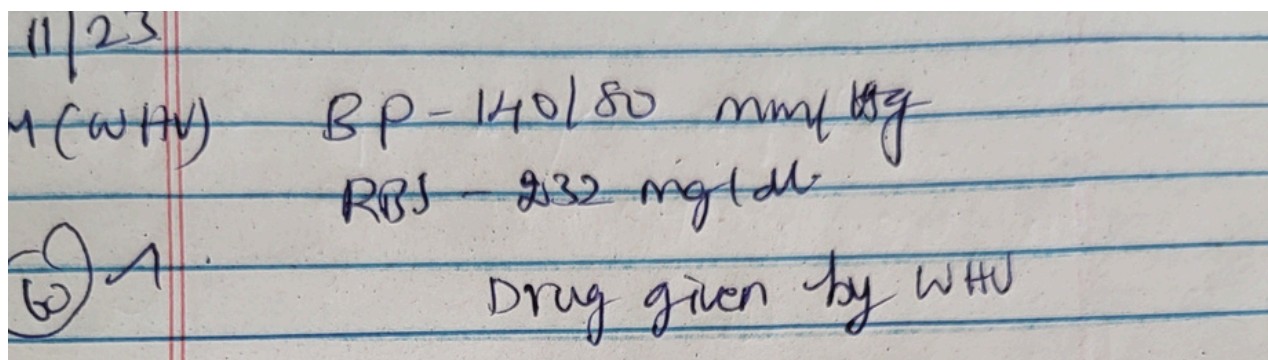 11/23
(WHV) BP - 140/80 mm/Hg
RBS - 232 mg/dl
60
Drug given by WHV